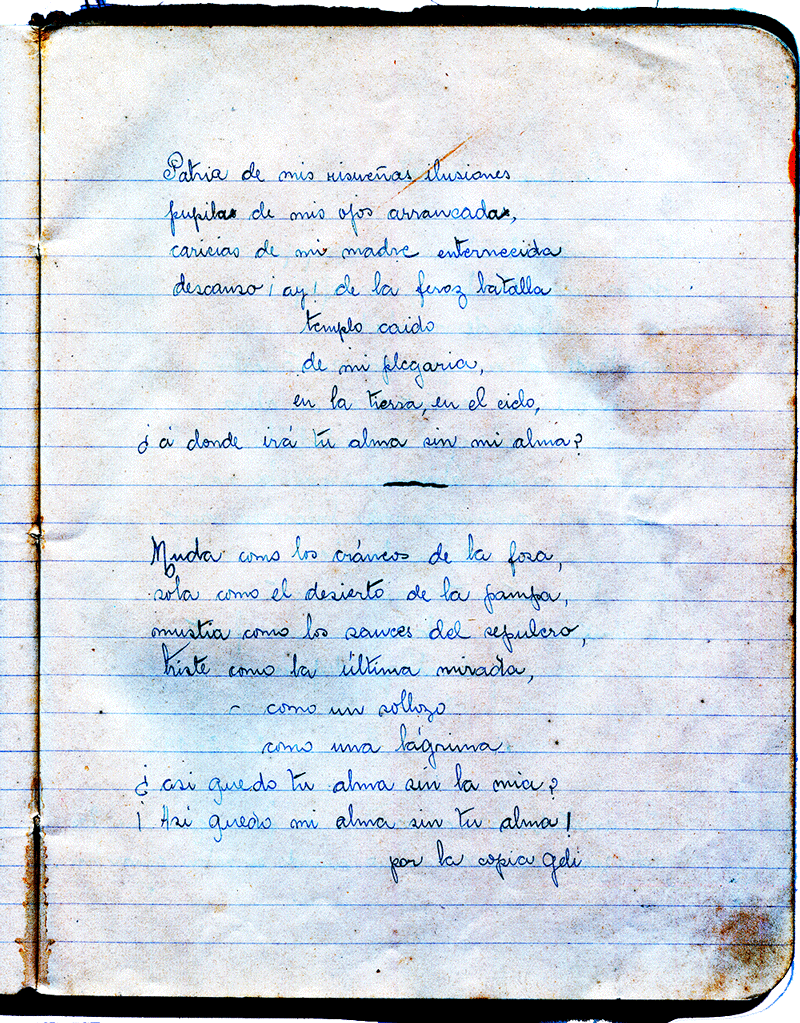 Patria de mis risueñas ilusiones
pupila de mis ojos arrancada,
caricias de mi madre enternecida
descanso ¡ay! de la feroz batalla
templo caido
de mi plegaria,
en la tierra, en el cielo,
¿a donde irá tu alma sin mi alma?
Muda como los cráneos de la fosa,
sola como el desierto de la pampa,
mustia como los sauces del sepulcro,
triste como la última mirada,
- como un sollozo
como una lágrima
¿asi quedo tu alma sin la mia?
¡Asi quedo mi alma sin tu alma!
por la copia Geli